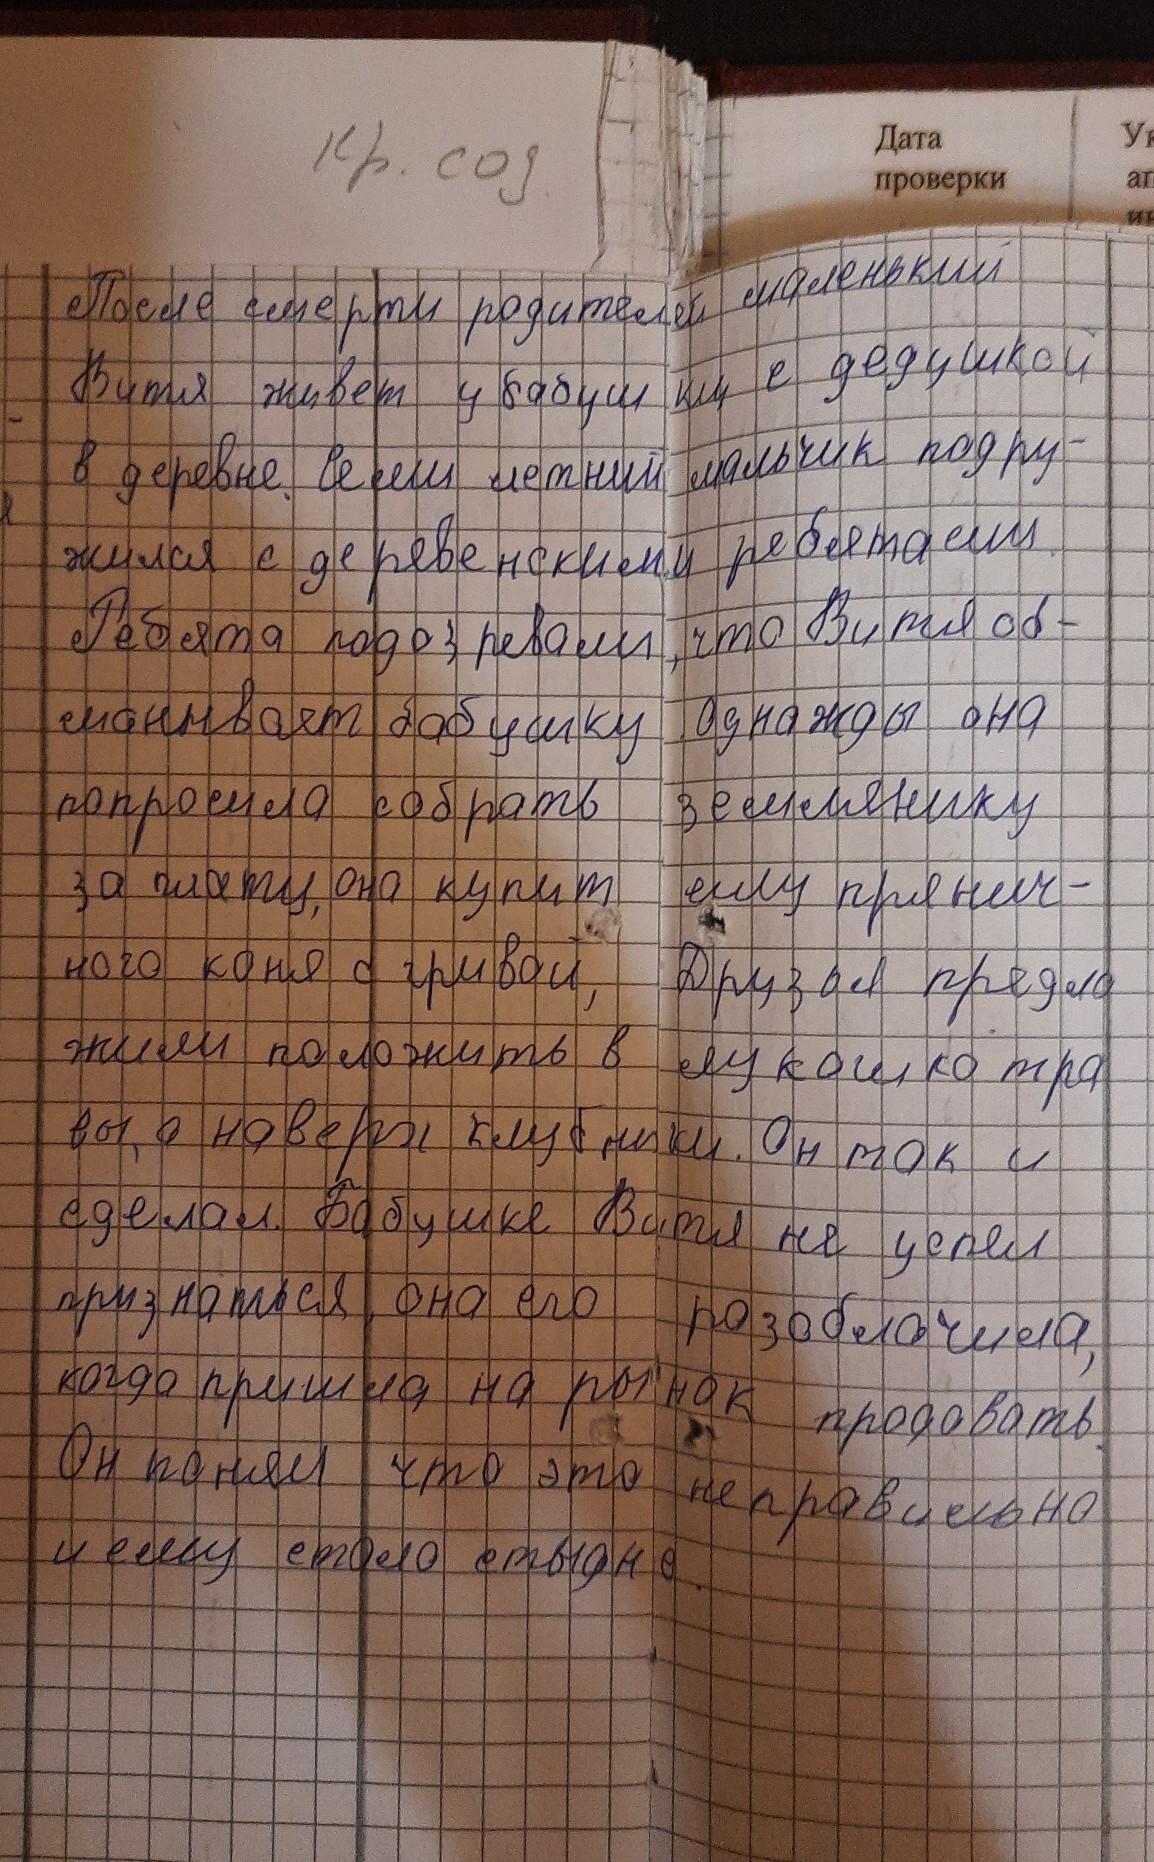 Кр. сод.
Дата
проверки
Ук
ап
ин
После смерти родителей маленький
Витя живет у бабушки с дедушкой
в деревне. Семи летний мальчик подру-
жился с деревенскими ребятами.
Ребята подозревали, что Витя об-
манывает бабушку. Однажды она
попросила собрать землянику
за плату, она купит ему прянич-
ного коня с гривой, Друзья предло
жили положить в лукошко тра
вы, а наверх клубники. Он так и
сделал. Бабушке Витя не успел
признаться, она его разоблачила,
когда пришла на рынок продавать.
Он понял что это неправильно
и ему стало стыдно.